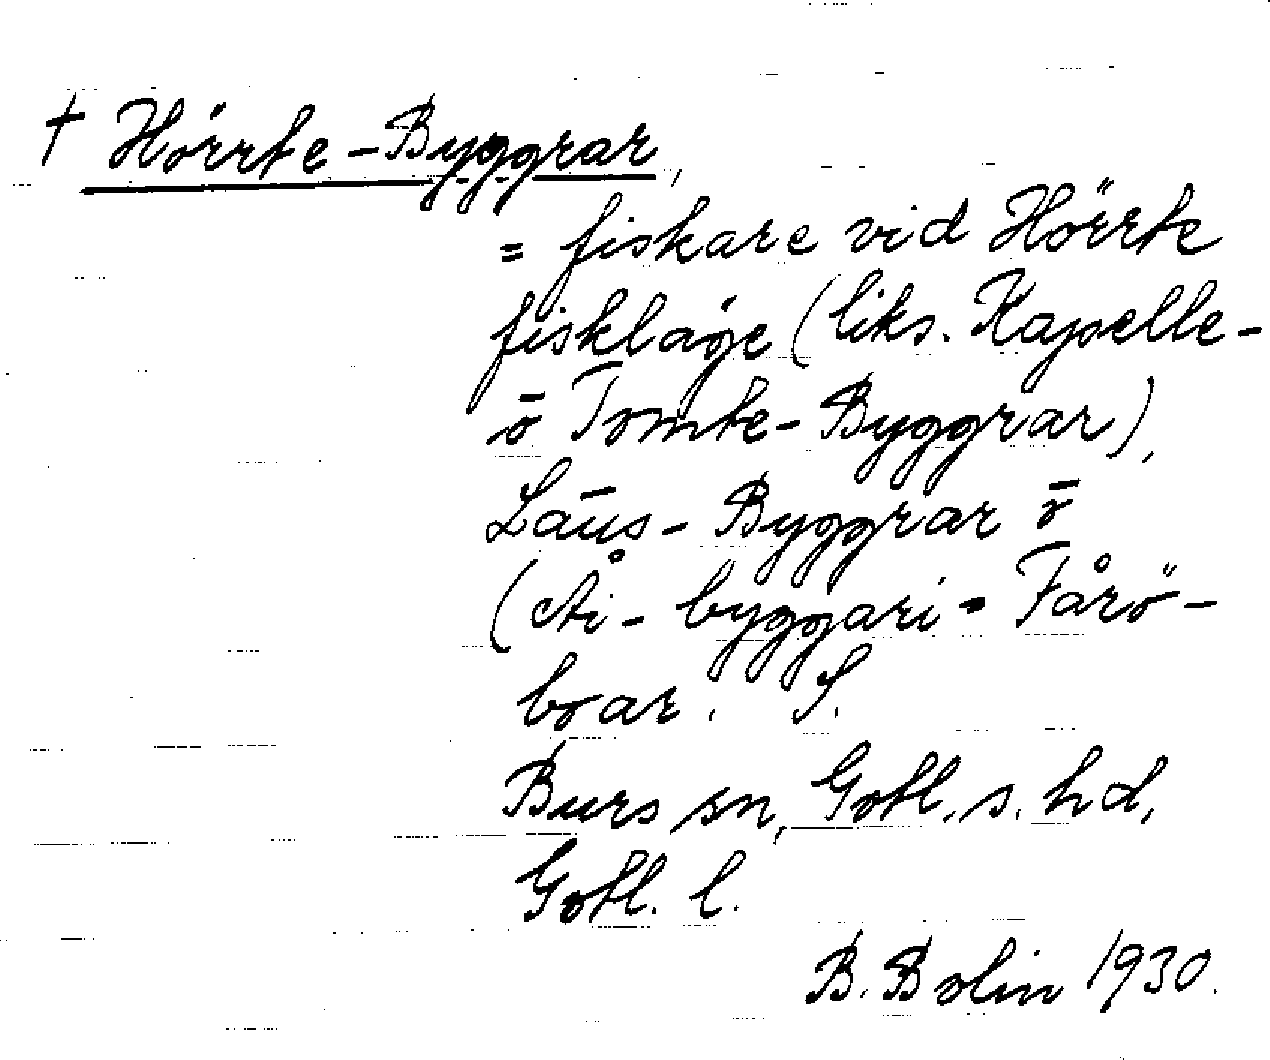 † Hörrte-Byggrar,
= fiskare vid Hörrte
fiskläge (liks. Kapelle-
ō Tomte-Byggrar),
Laūs-Byggrar ō
(Åi-byggari = Fårö-
boar. S.
Burs sn, Gotl. s. hd,
Gotl. l.
B. Bolin 1930.